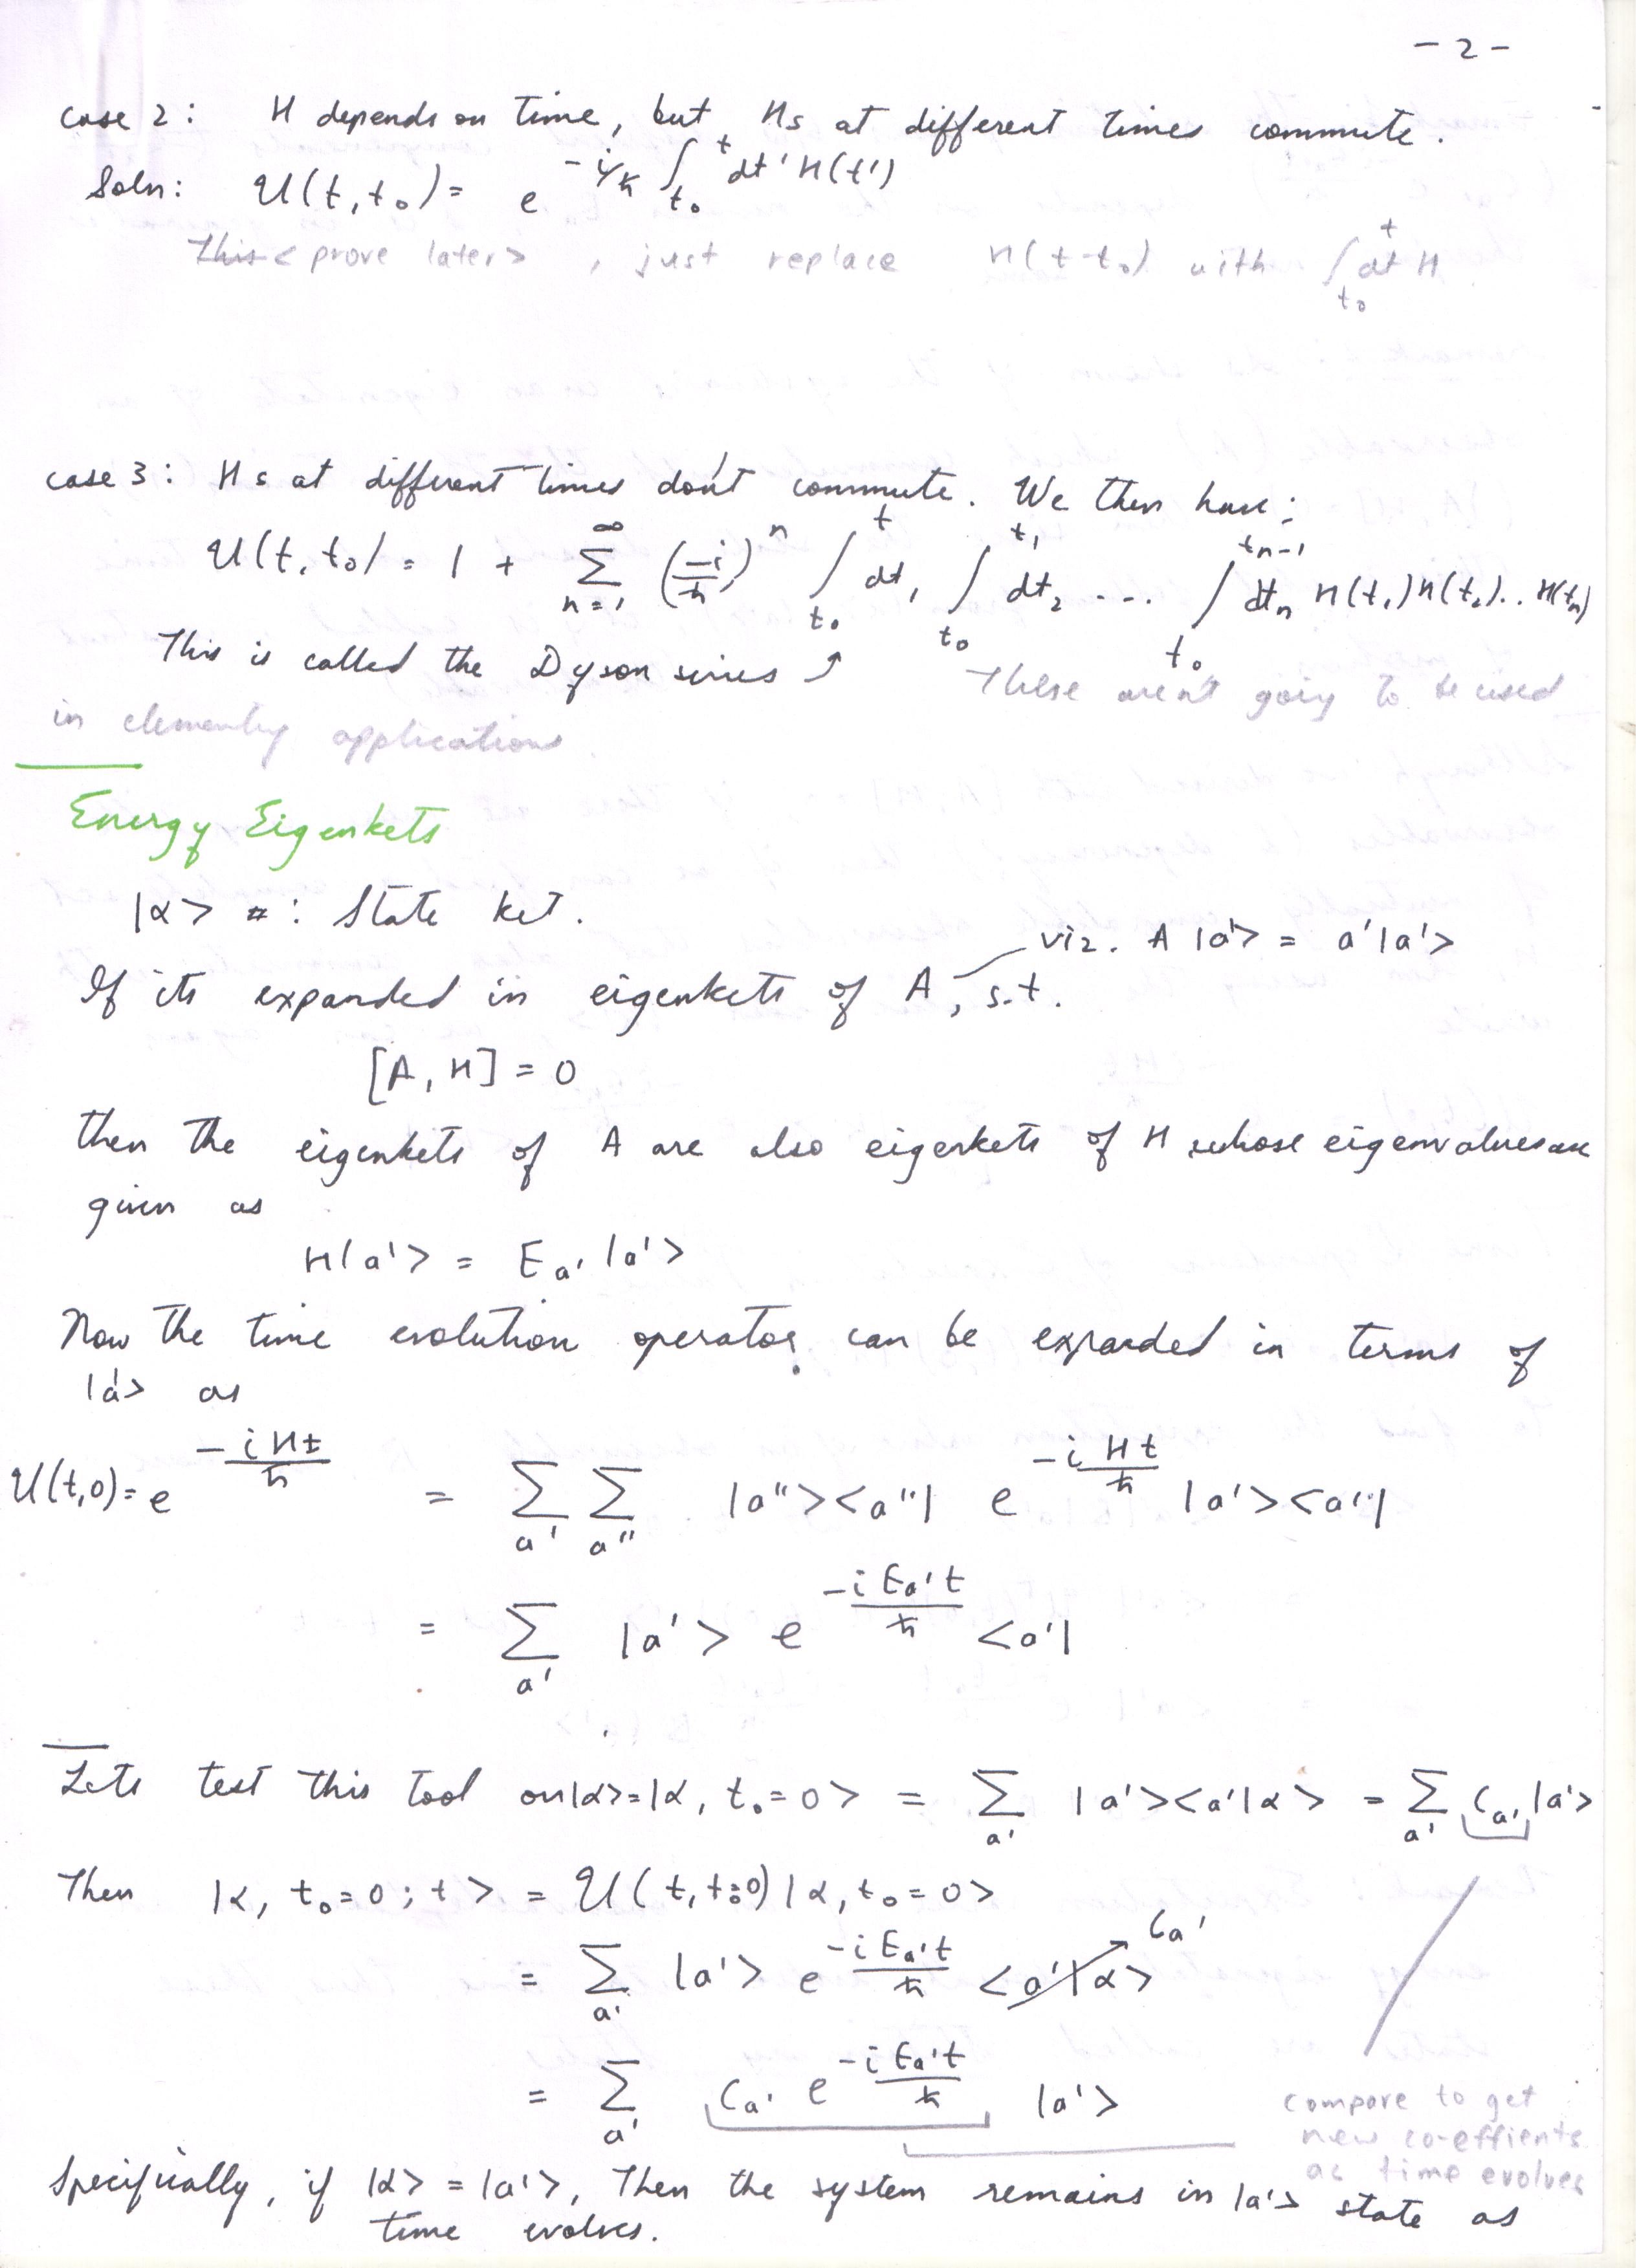 - 2 -
case 2: H depends on time, but Hs at different times commute.
Soln: U(t, t₀) = e^{-i/ħ ∫_{t₀}^{t} dt' H(t')}
This <prove later>, just replace H(t-t₀) with ∫_{t₀}^{t} dt H
case 3: Hs at different times don't commute. We then have;
U(t, t₀) = 1 + Σ_{n=1}^{∞} (-i/ħ)^n ∫_{t₀}^{t} dt₁ ∫_{t₀}^{t₁} dt₂ .... ∫_{t₀}^{t_{n-1}} dt_n H(t₁)H(t₂)..H(t_n)
This is called the Dyson series ↑ These aren't going to be used
in elementry applications.
Energy Eigenkets
|α> : State ket.
viz. A |a'> = a'|a'>
If its expanded in eigenkets of A, s.t.
[A, H] = 0
then the eigenkets of A are also eigenkets of H whose eigenvalues are
given as
H|a'> = E_{a'} |a'>
Now the time evolution operator can be expanded in terms of
|a'> as
U(t,0) = e^{-iHt/ħ} = Σ_{a'} Σ_{a''} |a''><a''| e^{-iHt/ħ} |a'><a'|
= Σ_{a'} |a'> e^{-iE_{a'}t/ħ} <a'|
Lets test this tool on |α>=|α, t₀=0> = Σ_{a'} |a'><a'|α> = Σ_{a'} C_{a'} |a'>
Then |α, t₀=0; t> = U(t, t₀=0)|α, t₀=0>
= Σ_{a'} |a'> e^{-iE_{a'}t/ħ} <a'|α> C_{a'}
= Σ_{a'} C_{a'} e^{-iE_{a'}t/ħ} |a'>
compare to get
new co-effients
as time evolves
Specifically, if |α> = |a'>, Then the system remains in |a'> state as
time evolves.